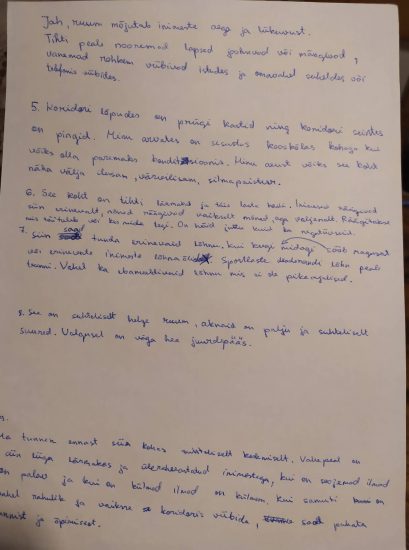 Jah, ruum mõjutab inimeste aega ja liikuvust.
Tihti peale nooremad lapsed jooksevad või mängivad,
vanemad rohkem viibivad istudes ja omavahel suheldes või
telefonis viibides.
5. Koridori lõpudes on prügi kastid ning koridori seintes
on pingid. Minu arvates on sisustus kooskõlas kohaga kui
võiks olla paremas konditsioonis. Minu arust võiks see koht
näha välja elusam, värvilisem, silmapaistvam.
6. See koht on tihti lärmakas ja täis laste hääli. Inimesed räägivad
siin erinevalt, mõned räägivad vaikselt mõned aga valjemalt. Räägitakse
mis
7. Siin saab tunda erinevaid lõhnu, kui keegi midagi sööb magusat
või erinevate inimeste lõhnaõli. Sportlaste deodorandi lõhn peale
trenni. Vahel ka ebameeldivaid lõhnu mis ei ole pikaajalised.
8. See on suhteliselt helge ruum, aknaid on palju ja suhteliselt
suured. Valgusel on väga hea juurdepääs.
9.
Ma tunnen ennast siin kohas suhteliselt keskmiselt. Vahepeal on
siin liiga lärmakas ja ülerahvastatud inimestega, kui on soojemad ilmad
on palav ja kui on külmad ilmad on külmem, kui samuti on
vahel rahulik ja vaikne koridoris viibida, saab puhata
tunnist ja õpimisest.